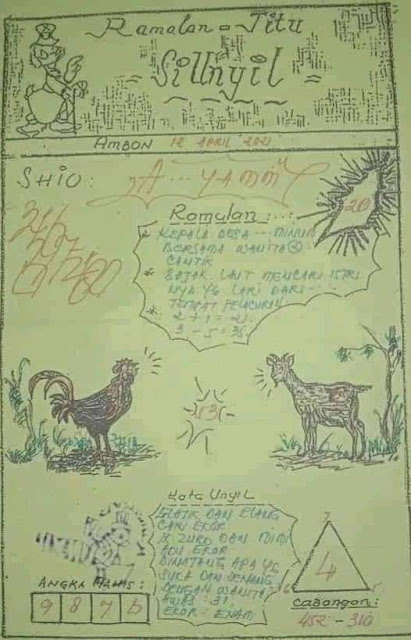 Ramalan = Titu
Sillnyil
AMBON 12 APRIL 2021
SHIO : A... YAMMM
20
Ramalan :
* KEPALA DESA --- MINUM
BERSAMA WANITA²
CANTIK
* BAJAK LAUT MENCARI ISTRI
NYA YG LARI DARI ...
TEMPAT PELACURAN
2 + 1 = 21
3 - 5 = 35
53
Kata Unyil
GLATIK DAN ELANG
CARI EKOR
ADU EKOR
BINATANG APA YG
SUKA DAN SENANG
DENGAN WANITA?
AWAS : 31
EKOR : ENAM
ANGKA MANIS :
9 8 7 6
7
4
Cabangan :
452 - 310